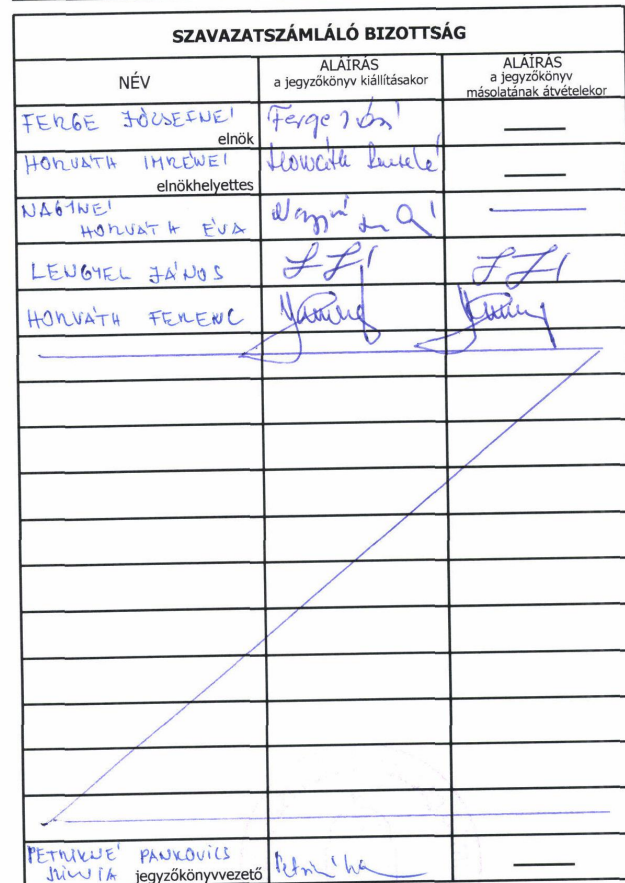 SZAVAZATSZÁMLÁLÓ BIZOTTSÁG
NÉV
ALÁÍRÁS
a jegyzőkönyv kiállításakor
ALÁÍRÁS
a jegyzőkönyv
másolatának átvételekor
FERGE JÓZSEFNÉ
elnök
Ferge
HORVÁTH IMRÉNÉ
elnökhelyettes
Horváth Imréné
NAGYNÉ
HORVÁTH ÉVA
Nagyné
LENGYEL JÁNOS
HORVÁTH FERENC
PETRIKNÉ PANKOVICS
SZILVIA jegyzőkönyvvezető